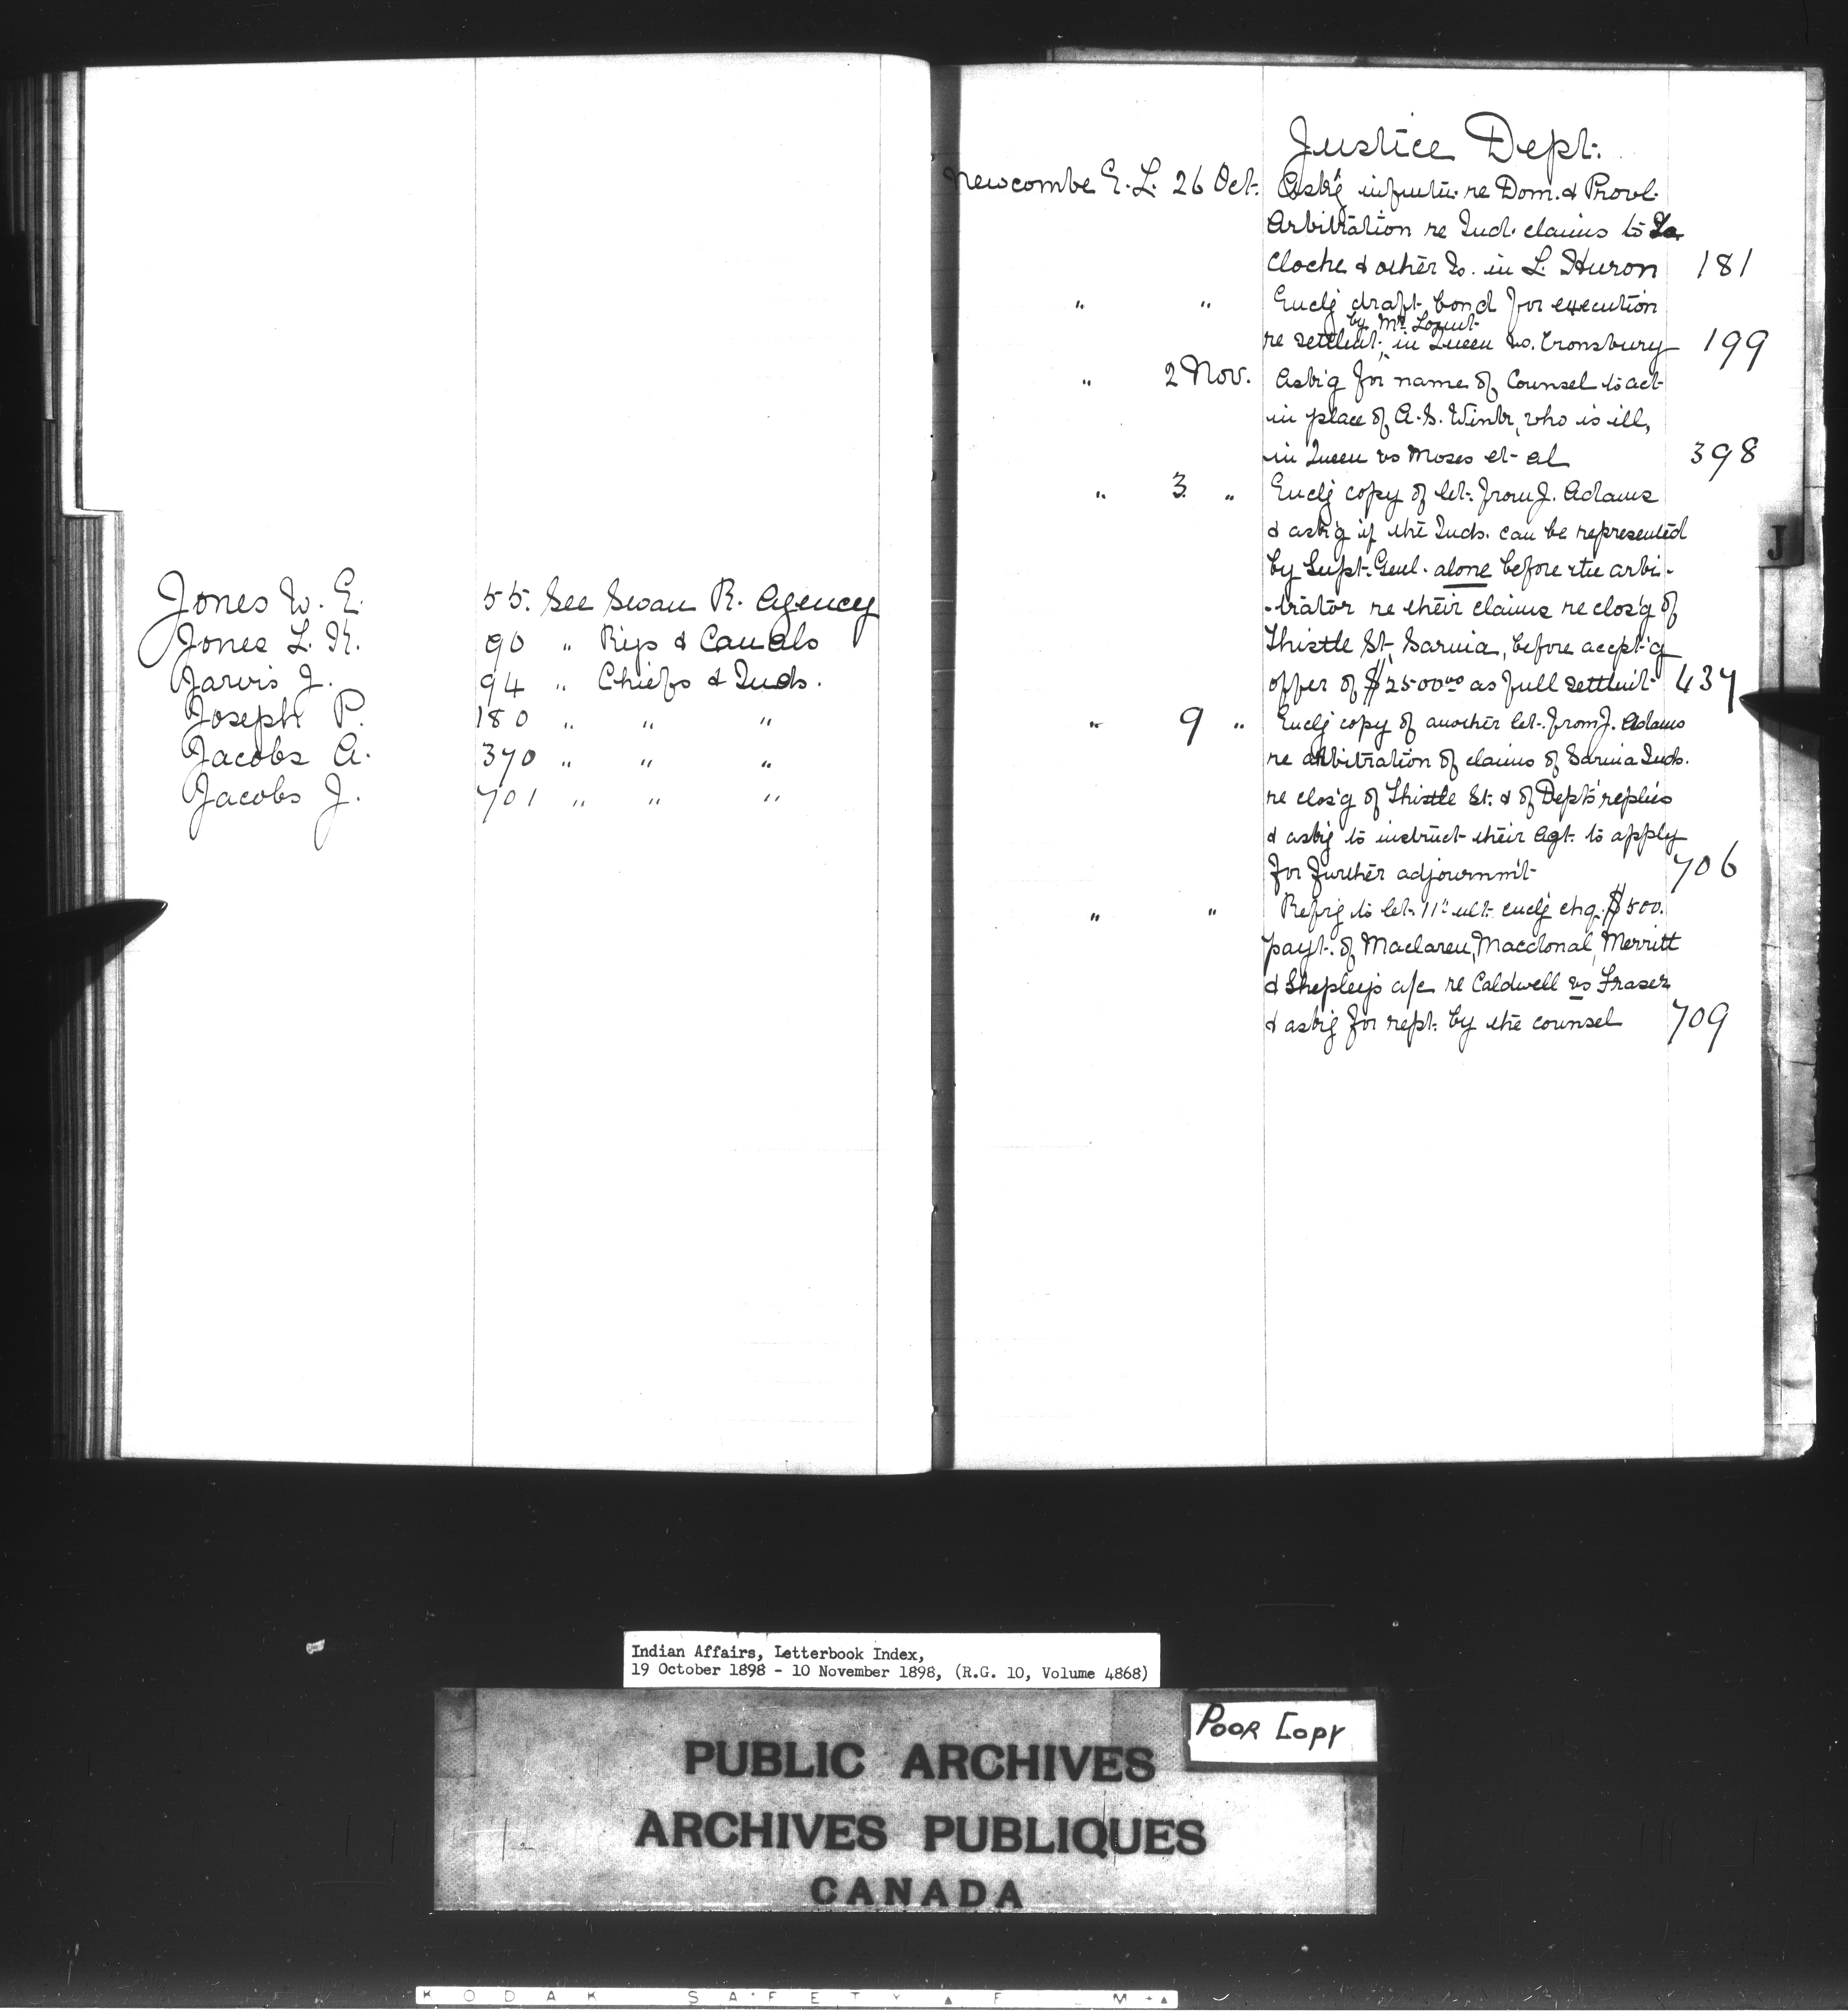 Jones W. E. 55. See Swan R. Agency
Jones L. K. 90 " Rys & Canals
Jarvis J. 94 " Chiefs & Inds.
Joseph P. 180 " " "
Jacobs A. 370 " " "
Jacobs J. 701 " " "
Justice Dept.
Newcombe E. L. 26 Oct. Ask'g infmtn. re Dom. & Provl.
Arbitration re Ind. claims to La
Cloche & other Is. in L. Huron 181
" " Enclg draft bond for execution
by Mr.
re settlmt. in Queen vs. Cronsbury 199
" 2 Nov. Ask'g for name of Counsel to act
in place of A. S. Wink, who is ill,
in Queen vs Moses et al 398
" 3 " Enclg copy of let. from J. Adams
& ask'g if the Inds. can be represented
by Supt. Genl. alone before the arbi-
-trator re their claims re clos'g of
Thistle St. Sarnia, before accpt'g
offer of $2500.00 as full settlmt. 437
" 9 " Enclg copy of another let. from J. Adams
re arbitration of claims of Sarnia Inds.
re clos'g of Thistle St. & of Depts' replies
& askg to instruct their Agt. to apply
for further adjournm't 706
" " Refrg to let. 11" ult. enclg chq. $500.
payt. of Maclaren, Macdonal, Merritt
& Shepley's a/c re Caldwell vs Fraser
& askg for rept. by the counsel 709
J
Indian Affairs, Letterbook Index,
19 October 1898 - 10 November 1898, (R.G. 10, Volume 4868)
POOR COPY
PUBLIC ARCHIVES
ARCHIVES PUBLIQUES
CANADA
KODAK SAFETY FILM